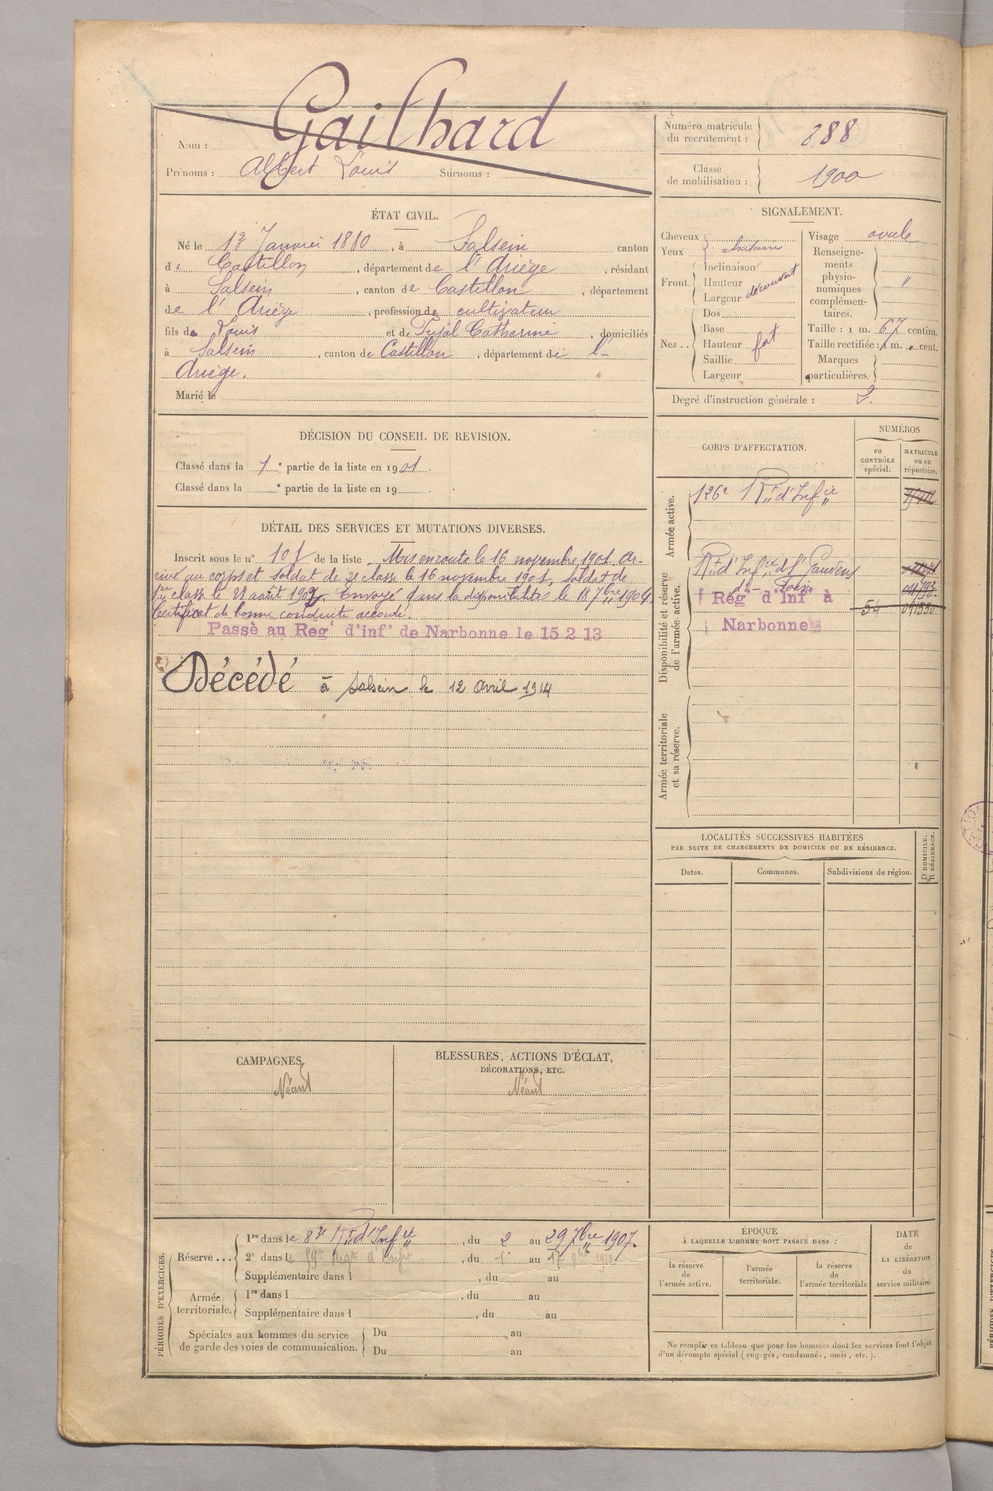 Gailhard
Nom :
Prénoms : Albert Louis Surnoms :
Numéro matricule du recrutement : 288
Classe de mobilisation : 1900
ÉTAT CIVIL.
Né le 13 Janvier 1880, à Salsein canton
de Castillon, département de l'Ariège, résidant
à Salsein, canton de Castillon, département
de l'Ariège, profession de cultivateur
fils de Louis et de Tujal Catherine, domiciliés
à Salsein, canton de Castillon, département de l'
Ariège.
Marié le
SIGNALEMENT.
Cheveux
Yeux châtains
Front. Inclinaison
Hauteur
Largeur découvert
Nez .. Dos
Base
Hauteur fort
Saillie
Largeur
Visage ovale
Renseigne-
ments
physio-
nomiques
complémen-
taires. "
Taille : 1 m. 67 centim.
Taille rectifiée : 1 m. cent.
Marques
particulières.
Degré d'instruction générale : 3.
DÉCISION DU CONSEIL DE REVISION.
Classé dans la 1 e partie de la liste en 1901.
Classé dans la e partie de la liste en 19
DÉTAIL DES SERVICES ET MUTATIONS DIVERSES.
Inscrit sous le n° 101 de la liste Mis en route le 16 novembre 1901 Ar-
rivé au corps et soldat de 2e classe le 16 novembre 1901, soldat de
1re classe le 21 août 1903. Envoyé dans la disponibilité le 18 7bre 1904
Certificat de bonne conduite accordé.
Passé au Reg' d'inf' de Narbonne le 15 2 13
Décédé à Salsein le 12 Avril 1914
CORPS D'AFFECTATION.
NUMÉROS
AU CONTRÔLE spécial.
MATRICULE ou au répertoire.
Armée active.
126e Rt d'Infie
Disponibilité et réserve de l'armée active.
Rt d'Infie de St Gaudens
Reg' d'Inf' à
Narbonne
54
Armée territoriale et sa réserve.
LOCALITÉS SUCCESSIVES HABITÉES
PAR SUITE DE CHANGEMENTS DE DOMICILE OU DE RÉSIDENCE.
Dates.
Communes.
Subdivisions de région.
D DOMICILE.
R RÉSIDENCE.
CAMPAGNES.
Néant
BLESSURES, ACTIONS D'ÉCLAT,
DÉCORATIONS, ETC.
Néant
PÉRIODES D'EXERCICES.
Réserve ... 1re dans le 83 Rt d'Infie, du 2 au 29 7bre 1907.
2e dans le, du 1 au 17
Supplémentaire dans l, du au
Armée territoriale. 1re dans l, du au
Supplémentaire dans l, du au
Spéciales aux hommes du service
de garde des voies de communication. Du au
Du au
ÉPOQUE
À LAQUELLE L'HOMME DOIT PASSER DANS :
la réserve de l'armée active.
l'armée territoriale.
la réserve de l'armée territoriale
DATE de LA LIBÉRATION du service militaire.
Ne remplir ce tableau que pour les hommes dont les services font l'objet
d'un décompte spécial (engagés, condamnés, omis, etc.).